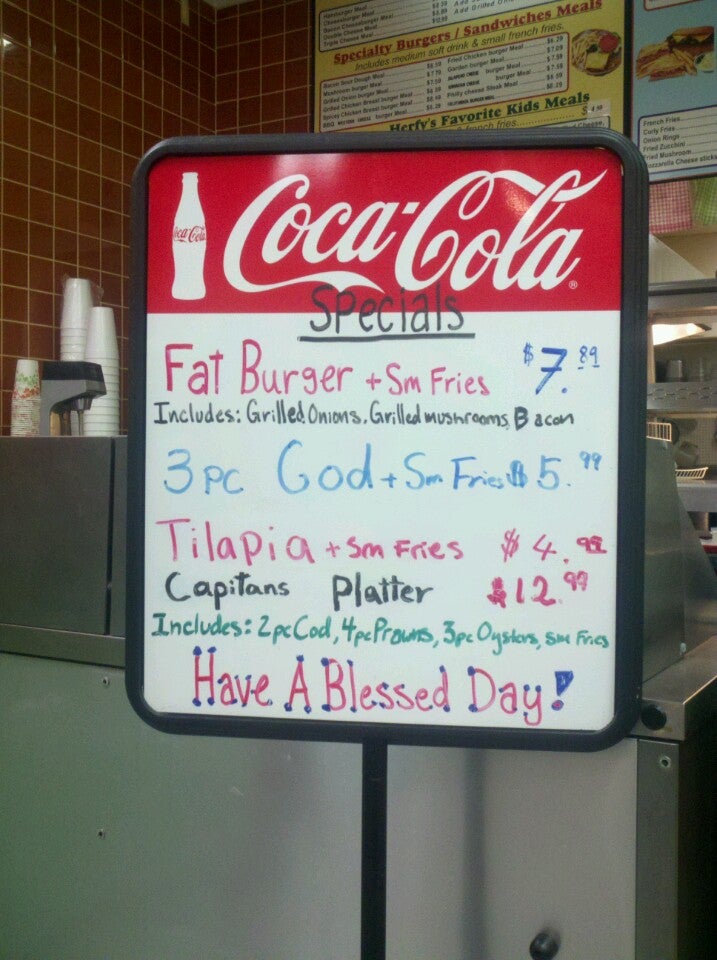 Hamburger Meal
Cheeseburger Meal
Bacon Cheeseburger Meal
Double Cheese Meal
Triple Cheese Meal
Specialty Burgers / Sandwiches Meals
Includes medium soft drink & small french fries.
Bacon Sour Dough Meal
Mushroom burger Meal
Grilled Onion burger Meal
Grilled Chicken Breast burger Meal
Spicy Chicken Breast burger Meal
BBQ WESTERN CHEESE burger Meal
Fried Chicken burger Meal
Garden burger Meal
JALAPENO CHEESE burger Meal
HAWAIIAN CHEESE burger Meal
Philly cheese Steak Meal
CALIFORNIA BURGER MEAL
Herfy's Favorite Kids Meals
French Fries
Curly Fries
Onion Rings
Fried Zucchini
Fried Mushroom
Mozzarella Cheese sticks
Coca-Cola
Coca-Cola®
Specials
Fat Burger + Sm Fries $7.89
Includes: Grilled Onions, Grilled mushrooms, Bacon
3 pc God + Sm Fries $5.99
Tilapia + Sm Fries $4.99
Capitans Platter $12.99
Includes: 2pc Cod, 4pc Prowns, 3pc Oysters, sm Fries
Have A Blessed Day!